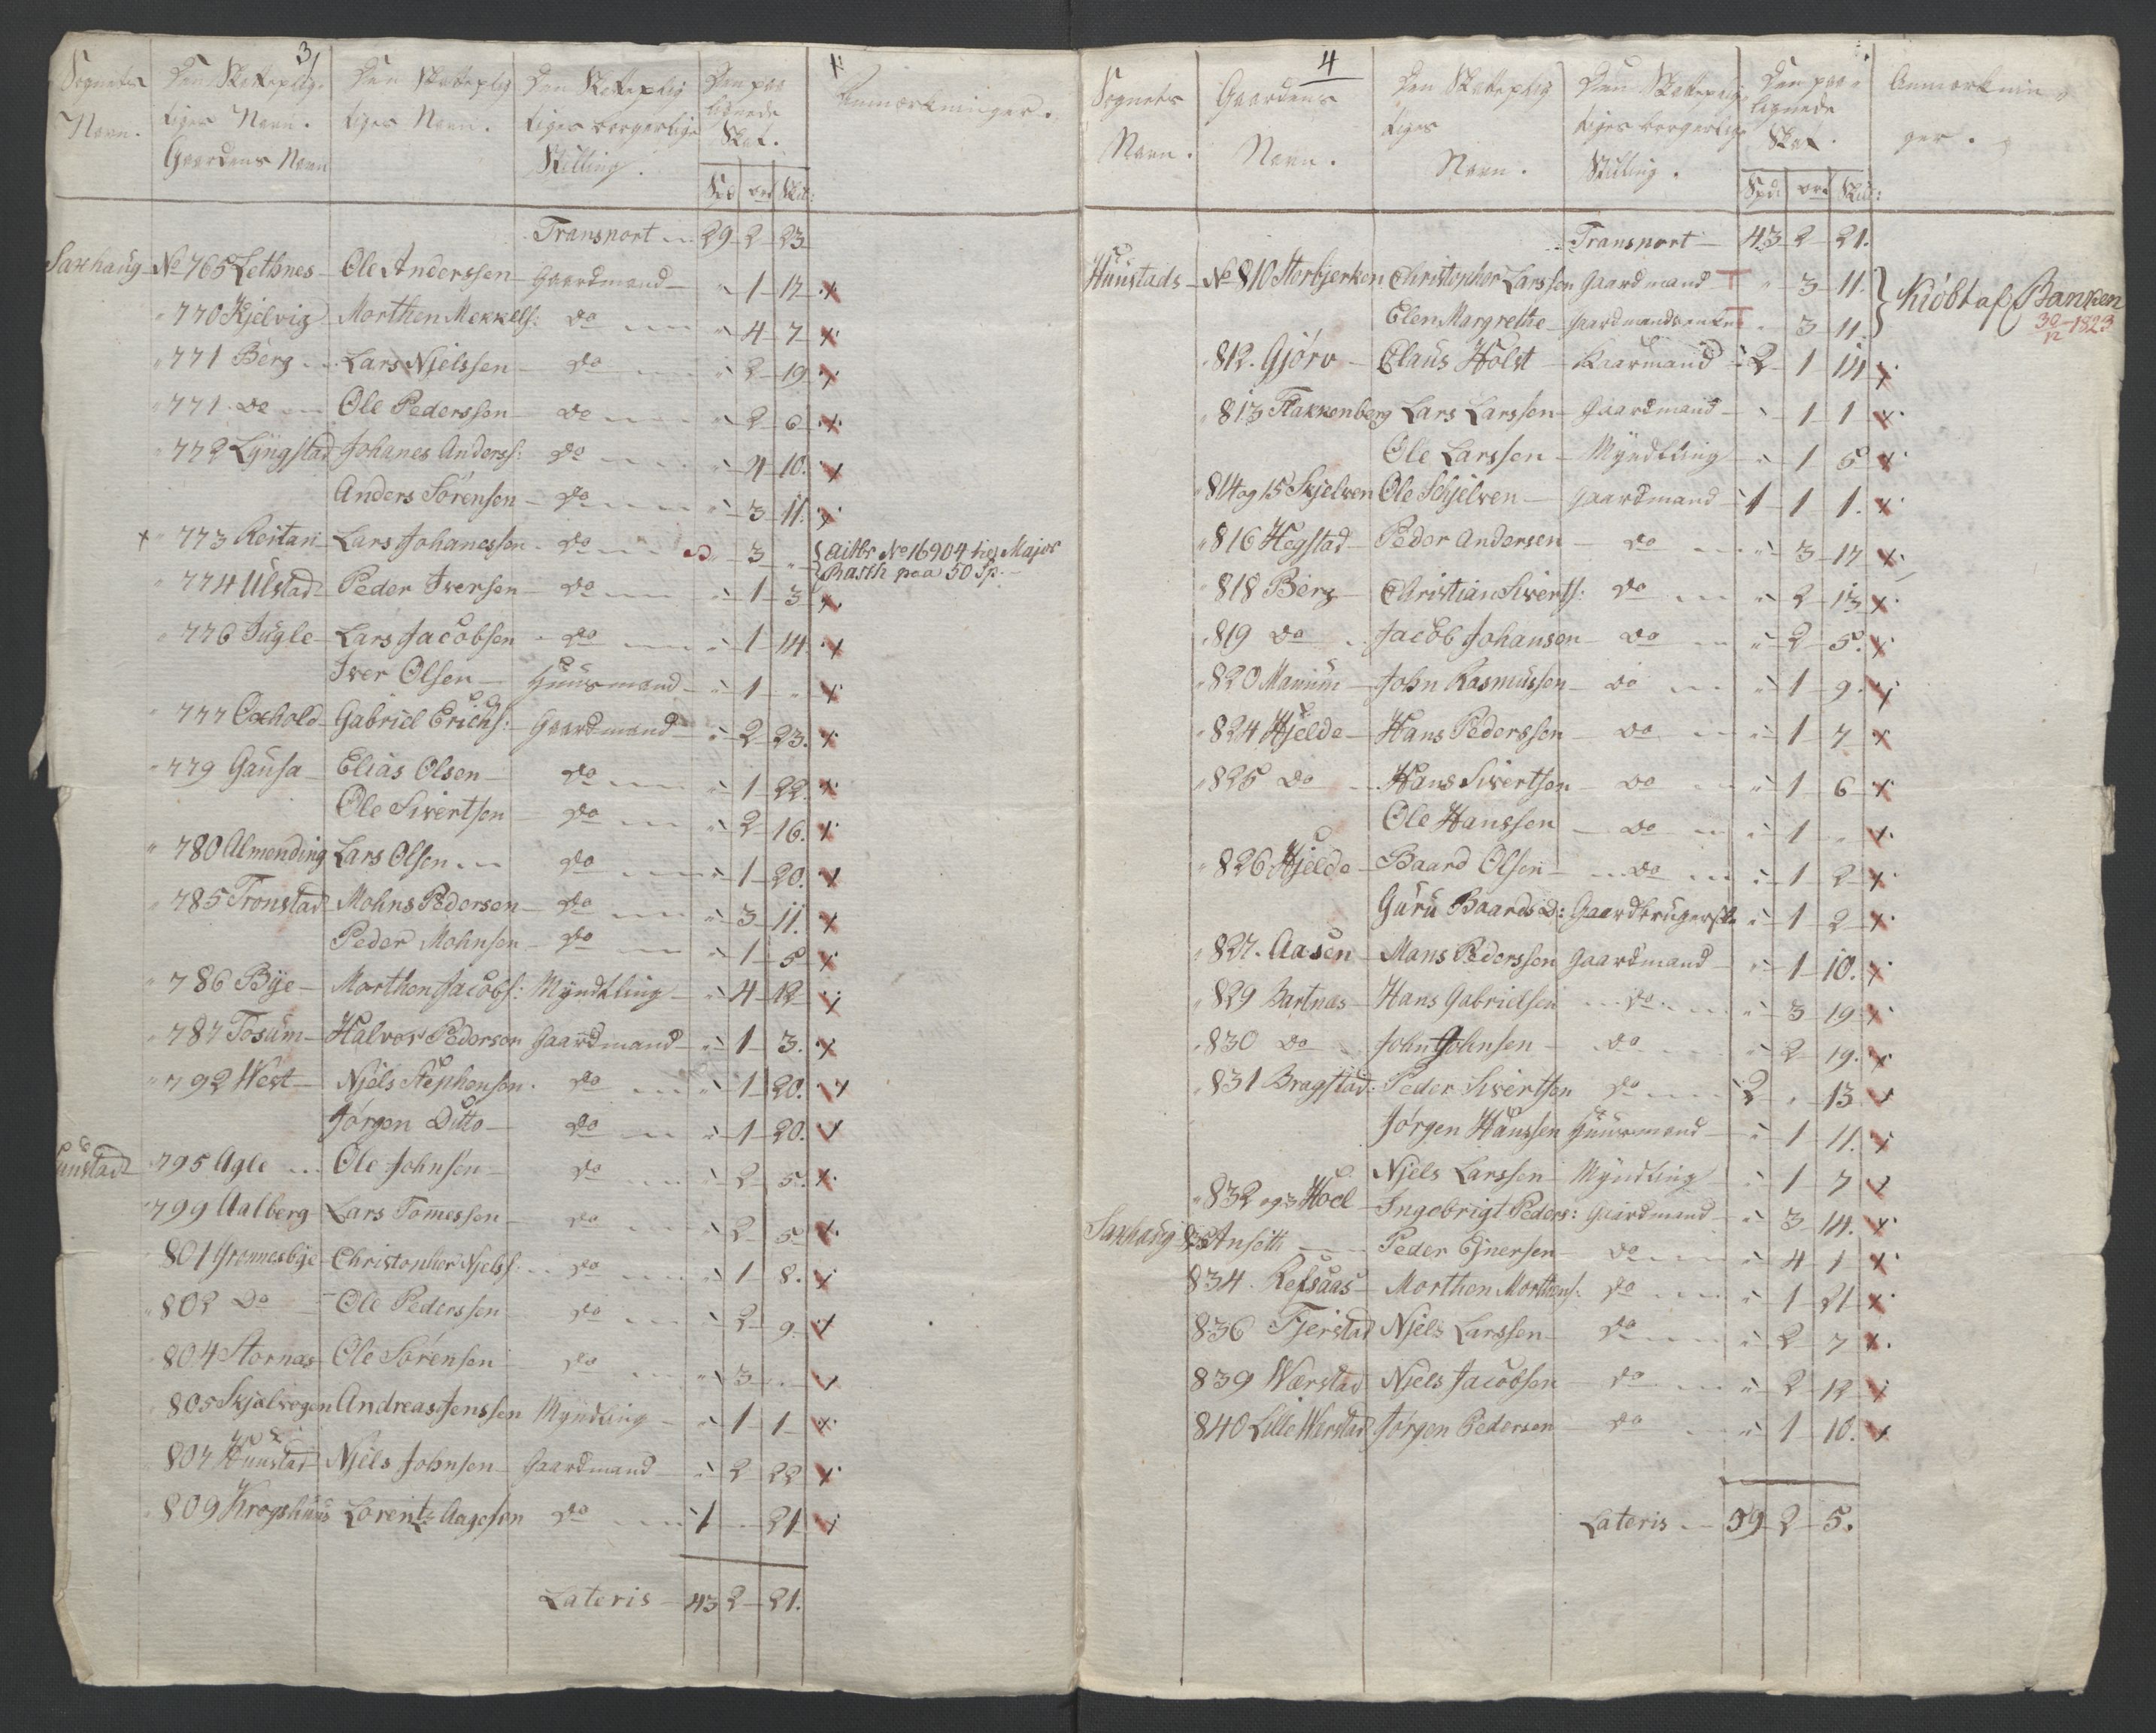 3
Sognets Navn. | Den Skatteplig- tiges Navn. Gaardens Navn | Den Skatteplig tiges Navn. | Den Skatteplig tiges borgerlige Stilling. | Den paa lignede Skat. | Anmærkninger.
Spd | ort | Skil:
Transport 29 2 23
Saxhaug No 765 Lethnes Ole Anderssen Gaardmand " 1 17 x
" 770 Kjelvig Morthen Mekkels: do " 4 7 x
" 771 Berg Lars Njelssen do " 2 19 x
" 771 do Ole Pederssen do " 2 6 x
" 772 Lyngstad Johanes Anderss: do " 4 10. x
Anders Sörensen do " 3 11. x
x " 773 Reitan Lars Johanessen do " 3 " { Aitbr No 16904 hos Major
Basth paa 50 Sp.
" 774 Ulstad Peder Iversen do " 1 3 x
" 776 Jugle Lars Jacobsen do " 1 14. x
Iver Olsen Huusmand " 1 " x
" 777 Oxhold Gabriel Erichs: Gaardmand " 2 23. x
" 779 Gausa Elias Olsen do " 1 22. x
Ole Sivertsen do " 2 16. x
" 780 Almending Lars Olsen do " 1 20. x
" 785 Tronstad Mohns Pedersen do " 3 11. x
Peder Mohnsen do " 1 5 x
" 786 Bye Morthen Jacobs: Myndtling " 4 12 x
" 787 Tosum Halvor Pedersen Gaardmand " 1 3. x
" 792 West Njels Stephensen do " 1 20. x
Jörgen Ditto do " 1 20. x
Hunstad 795 Agle Ole Johnsen do " 2 5. x
" 799 Aalberg Lars Tomessen do " 2 5 x
801 Grönnesbye Christopher Njelss: do " 1 8. x
" 802 Do Ole Pederssen do " 2 9. x
" 804 Stornas Ole Sörensen do " 3 " x
" 805 Skjælvogen Andreas Jenssen Myndling " 1 1 x
807 Huustad Njels Johnsen Gaardmand " 2 22 x
" 809 Krogshuus Lorentz Aagesen do 1 " 21 x
Lateris 43 2 21.
4
Sognets Navn. | Gaardens Navn. | Den Skatteplig tiges Navn. | Den Skatteplig tiges borgerlige Stilling. | Den paa- lignede Skat. | Anmærknin ger.
Spd: | ort | Skill:
Transport 43 2 21.
Huustads No 810 Sterbjerken Christopher Larssen Gaardmand " 3 11. } Kiöbt af Banken
Elen Margrethe Gaardmandsenke " 3 11. 30/12 1823
" 812. Gjörv Claus Holst Kaarmand 2 1 14 x
" 813 Flakkenberg Lars Larssen Gaardmand " 1 1 x
Ole Larssen Myndtling " 1 5 x
" 814 og 15 Skjelven Ole Schjelven Gaardmand 1 1 1. x
" 816 Hegstad Peder Andersen do " 3 17 x
" 818 Berg Christian Siverts: do " 2 13 x
" 819 do Jacob Johansen do " 2 5. x
" 820 Manum John Rasmussen do " 1 9. x
" 824 Hjelde Hans Pederssen do " 1 7 x
" 825 do Hans Sivertsen do " 1 6 x
Ole Hanssen do " 1 " x
" 826 Hjelde Baard Olsen do " 1 2 x
Guru Baards D: Gaardbrugerske " 1 2 x
" 827. Aasen Mans Pederssen Gaardmand " 1 10. x
" 829 Bartnas Hans Gabrielsen do " 3 19 x
" 830 do John Johnsen do " 2 19. x
" 831 Bragstad Peder Sivertsen do 2 " 13 x
Jörgen Hanssen Huusmand " 1 11. x
Njels Larssen Myndling " 1 7 x
" 832 og 3 Hoel Ingebrigt Peders: Gaardmand " 3 14. x
Saxhaug Ansetti Peder Ejnersen do " 4 1 x
834. Refsaas Morthen Mortens: do " 1 21 x
836 Fjerstad Njels Larssen do " 2 7 x
839 Wærstad Njels Jacobsen do " 2 12 x
840 Lille Wærstad Jörgen Pedersen do " 1 10. x
Lateris 59 2 5.